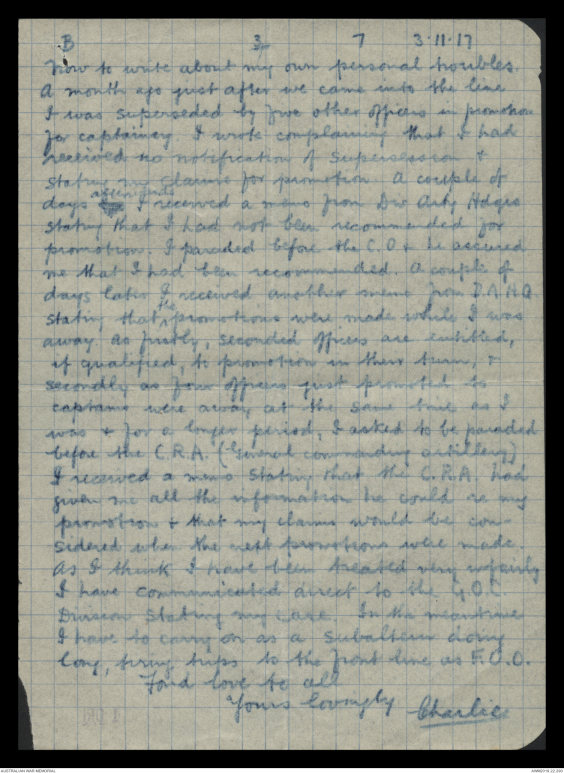 B 3 7 3.11.17
Now to write about my own personal troubles.
A month ago just after we came into the line
I was superseded by five other officers in promotion
for captaincy. I wrote complaining that I had
received no notification of supersession &
stating my claims for promotion. A couple of
afterwards
days I received a memo from Div Arty Hdqrs
stating that I had not been recommended for
promotion. I paraded before the C.O & he assured
me that I had been recommended. A couple of
days later I received another memo from D.A.H.Q
stating that the promotions were made while I was
away. As firstly, seconded officers are entitled,
if qualified, to promotion in their turn, &
secondly as four officers just promoted to
captains were away at the same time as I
was & for a longer period, I asked to be paraded
before the C.R.A. (General commanding artillery)
I received a memo stating that the C.R.A. had
given me all the information he could re my
promotion & that my claims would be con-
sidered when the next promotions were made.
As I think I have been treated very unfairly
I have communicated direct to the G.O.C.
Division stating my case. In the meantime
I have to carry on as a subaltern doing
long, tiring trips to the front line as F.O.O.
Fond love to all
Yours lovingly Charlie
AUSTRALIAN WAR MEMORIAL